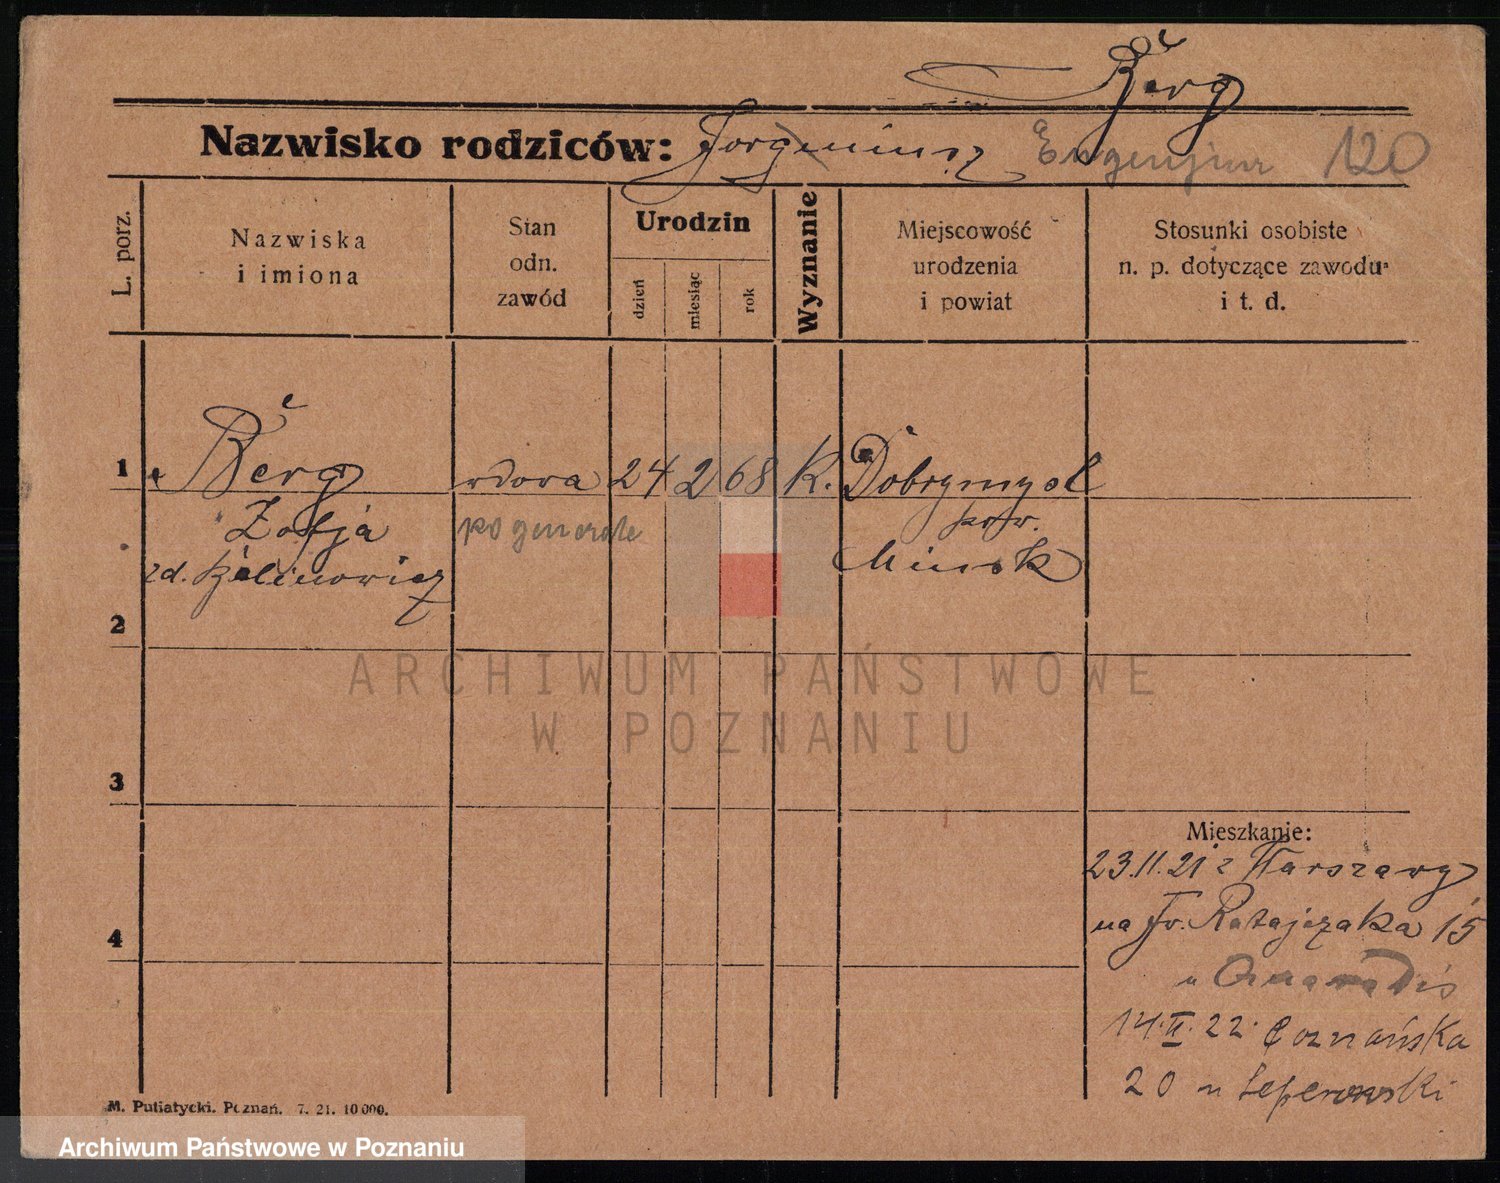 Berg
Nazwisko rodziców: Jorgeniusz Eugenjusz 120
L. porz.
Nazwiska
i imiona
Stan
odn.
zawód
Urodzin
dzień
miesiąc
rok
Wyznanie
Miejscowość
urodzenia
i powiat
Stosunki osobiste
n. p. dotyczące zawodu
i t. d.
1 Berg wdowa 24 2 68 K. Dobrymysl
Zofja po generale pow.
zd. Kalinowicz Minsk
2
ARCHIWUM PAŃSTWOWE
W POZNANIU
3
Mieszkanie:
23.11.21 z Warszawy
4 na Fr. Ratajczaka 15
u
14.II.22. Poznańska
20 u
M. Putiatycki. Poznań. 7. 21. 10 000.
Archiwum Państwowe w Poznaniu